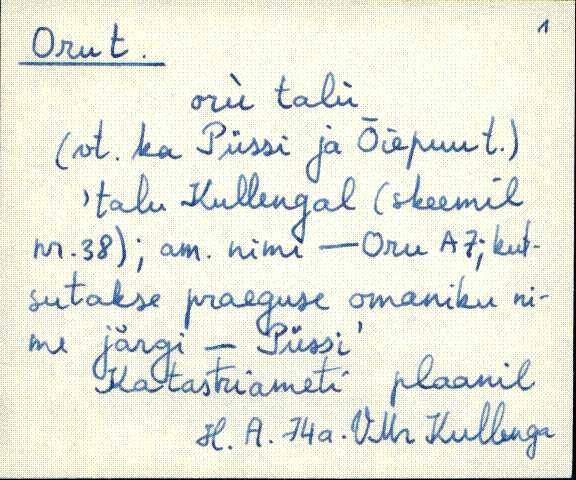 1
Oru t.
orù talù
(vt. ka Püssi ja Õiepuu t.)
'talu Kullengal (skeemil
nr. 38); am. nimi — Oru A7; kut-
sutakse praeguse omaniku ni-
me järgi — Püssi'
Katastriameti plaanil
H. A. 74a. VMr Kullenga